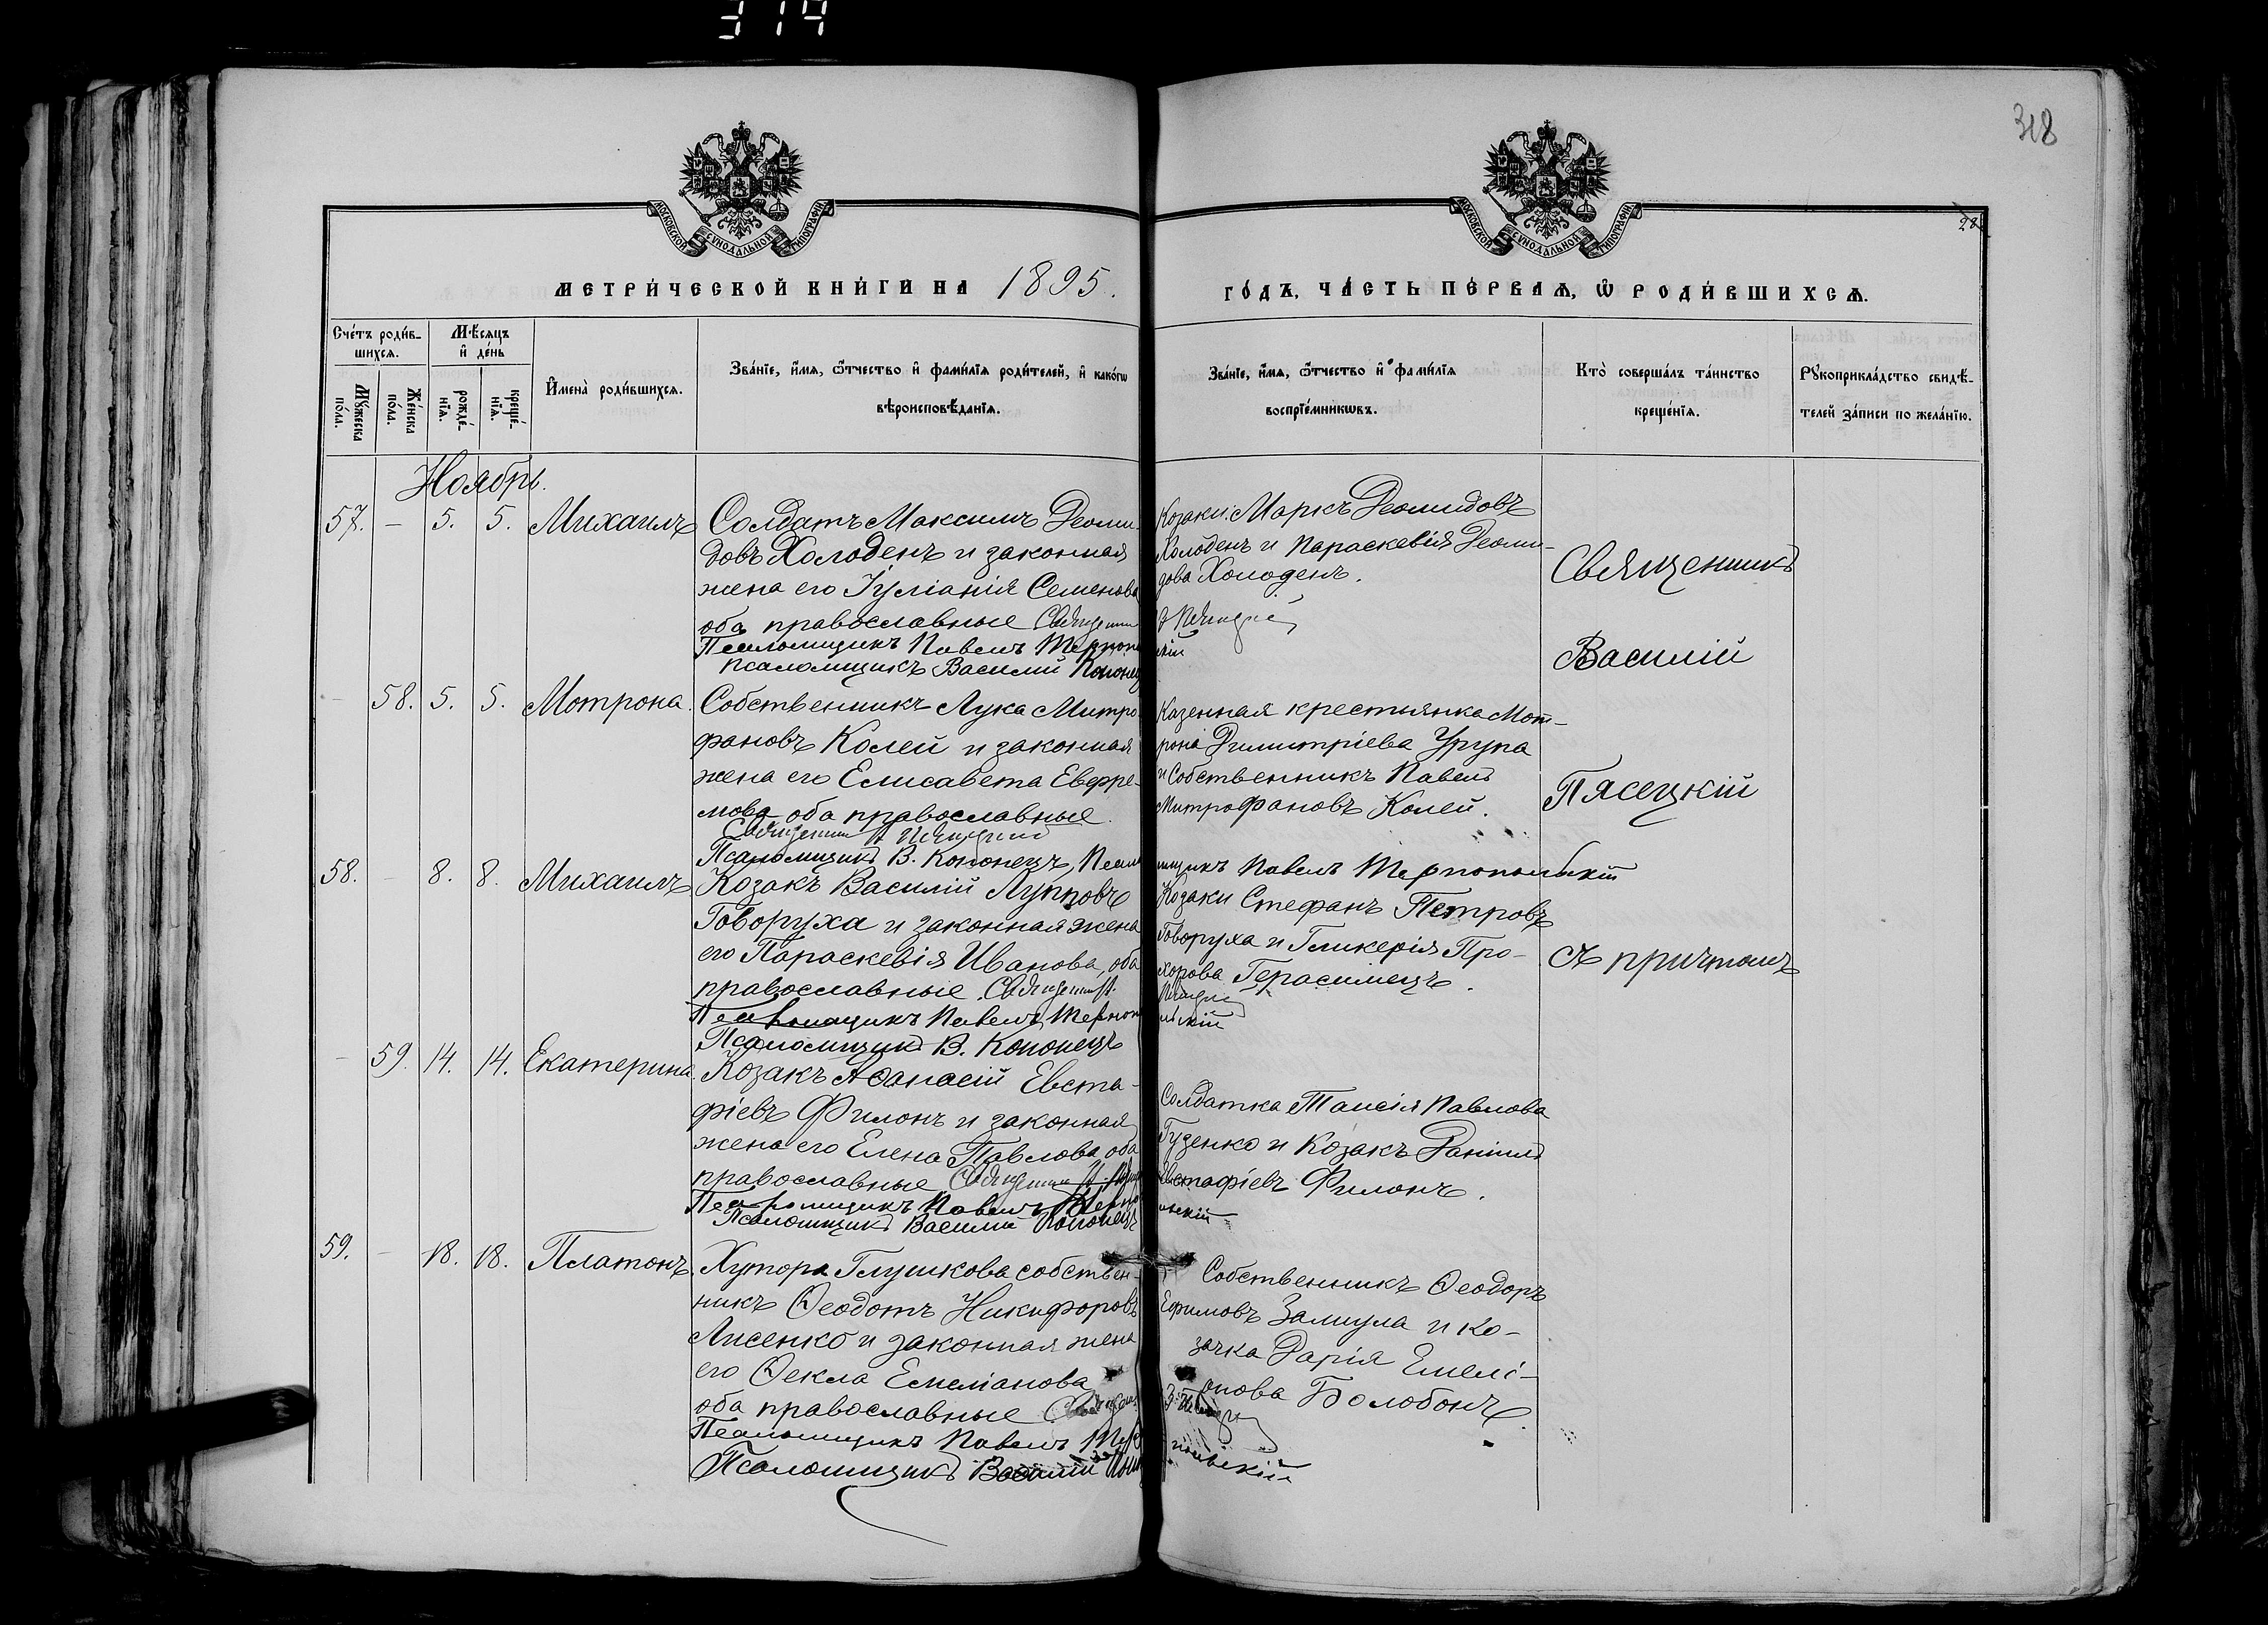 314
318
28
МОСКОВСКОЙ СѴНОДАЛЬНОЙ ТИПОГРАФІИ
МОСКОВСКОЙ СѴНОДАЛЬНОЙ ТИПОГРАФІИ
МЕТРИ́ЧЕСКОЙ КНИ́ГИ НА 1895.
ГО́ДЪ, ЧА́СТЬ ПЕ́РВАѦ, Ѽ РОДИ́ВШИХСѦ.
Сче́тъ роди́в-
шихсѧ.
Мꙋ́жеска
по́ла.
Же́нска
по́ла.
Мѣ́сяцъ
и҆ де́нь
рожде́-
нїѧ.
креще́-
нїѧ.
И҆мена̀ роди́вшихсѧ.
Зва́нїе, и҆́мѧ, ѻ҆́тчество и҆ фами́лїѧ роди́телей, и҆ како́гѡ
вѣроисповѣ́данїѧ.
Зва́нїе, и҆́мѧ, ѻ҆́тчество и҆ фами́лїѧ
воспрїе́мникѡвъ.
Кто̀ соверша́лъ та́инство
креще́нїѧ.
Рꙋкоприкла́дство свидѣ́-
телей за́писи по жела́нїю.
Ноябрь.
57. – 5. 5. Михаилъ
Солдатъ Максимъ Деоми-
довъ Холоденъ и законная
жена его Іуліанія Семенова
оба православные Священник
Псаломщикъ Павелъ Терноп
Псаломщикъ Василій Кононец
Козаки: Маркъ Деомидовъ
Холоденъ и Параскевія Деоми-
дова Холоденъ.
скій
Священникъ
Василій
Пясецкій
съ причтомъ
– 58. 5. 5. Мотрона.
Собственникъ Лука Митро-
фановъ Колей и законная
жена его Елисавета Евфре-
мова оба православные.
Священник
Псаломщикъ В. Кононецъ, Псало
Казенная крестьянка Мот-
рона Димитріева Урупа
и Собственникъ Павелъ
Митрофановъ Колей.
мщикъ Павелъ Тернопольскій
58. – 8. 8. Михаилъ
Козакъ Василій Лупповъ
Говоруха и законная жена
его Параскевія Иванова, оба
православные. Священник
Псаломщикъ Павелъ Терноп
Псаломщикъ В. Кононецъ
Козаки Стефанъ Петровъ
Говоруха и Гликерія Про-
хорова Герасимецъ.
льскій
– 59. 14. 14. Екатерина.
Козакъ Аѳанасій Евста-
фіевъ Филонъ и законная
жена его Елена Павлова, оба
православные Священник
Псаломщикъ Павелъ Терно
Псаломщикъ Василій Кононецъ
Солдатка Таисія Павлова
Гуденко и Козакъ Даніилъ
Евстафіевъ Филонъ.
льскій
59. – 18. 18. Платонъ.
Хутора Глушкова собствен-
никъ Ѳеодотъ Никифоровъ
Лисенко и законная жена
его Ѳекла Емеліанова
оба православные
Псаломщикъ Павелъ Тер
Псаломщикъ Василій Кон
Собственникъ Ѳеодоръ
Ефимовъ Замула и ко-
зачка Дарія Емелі-
анова Болобонъ.
польскій